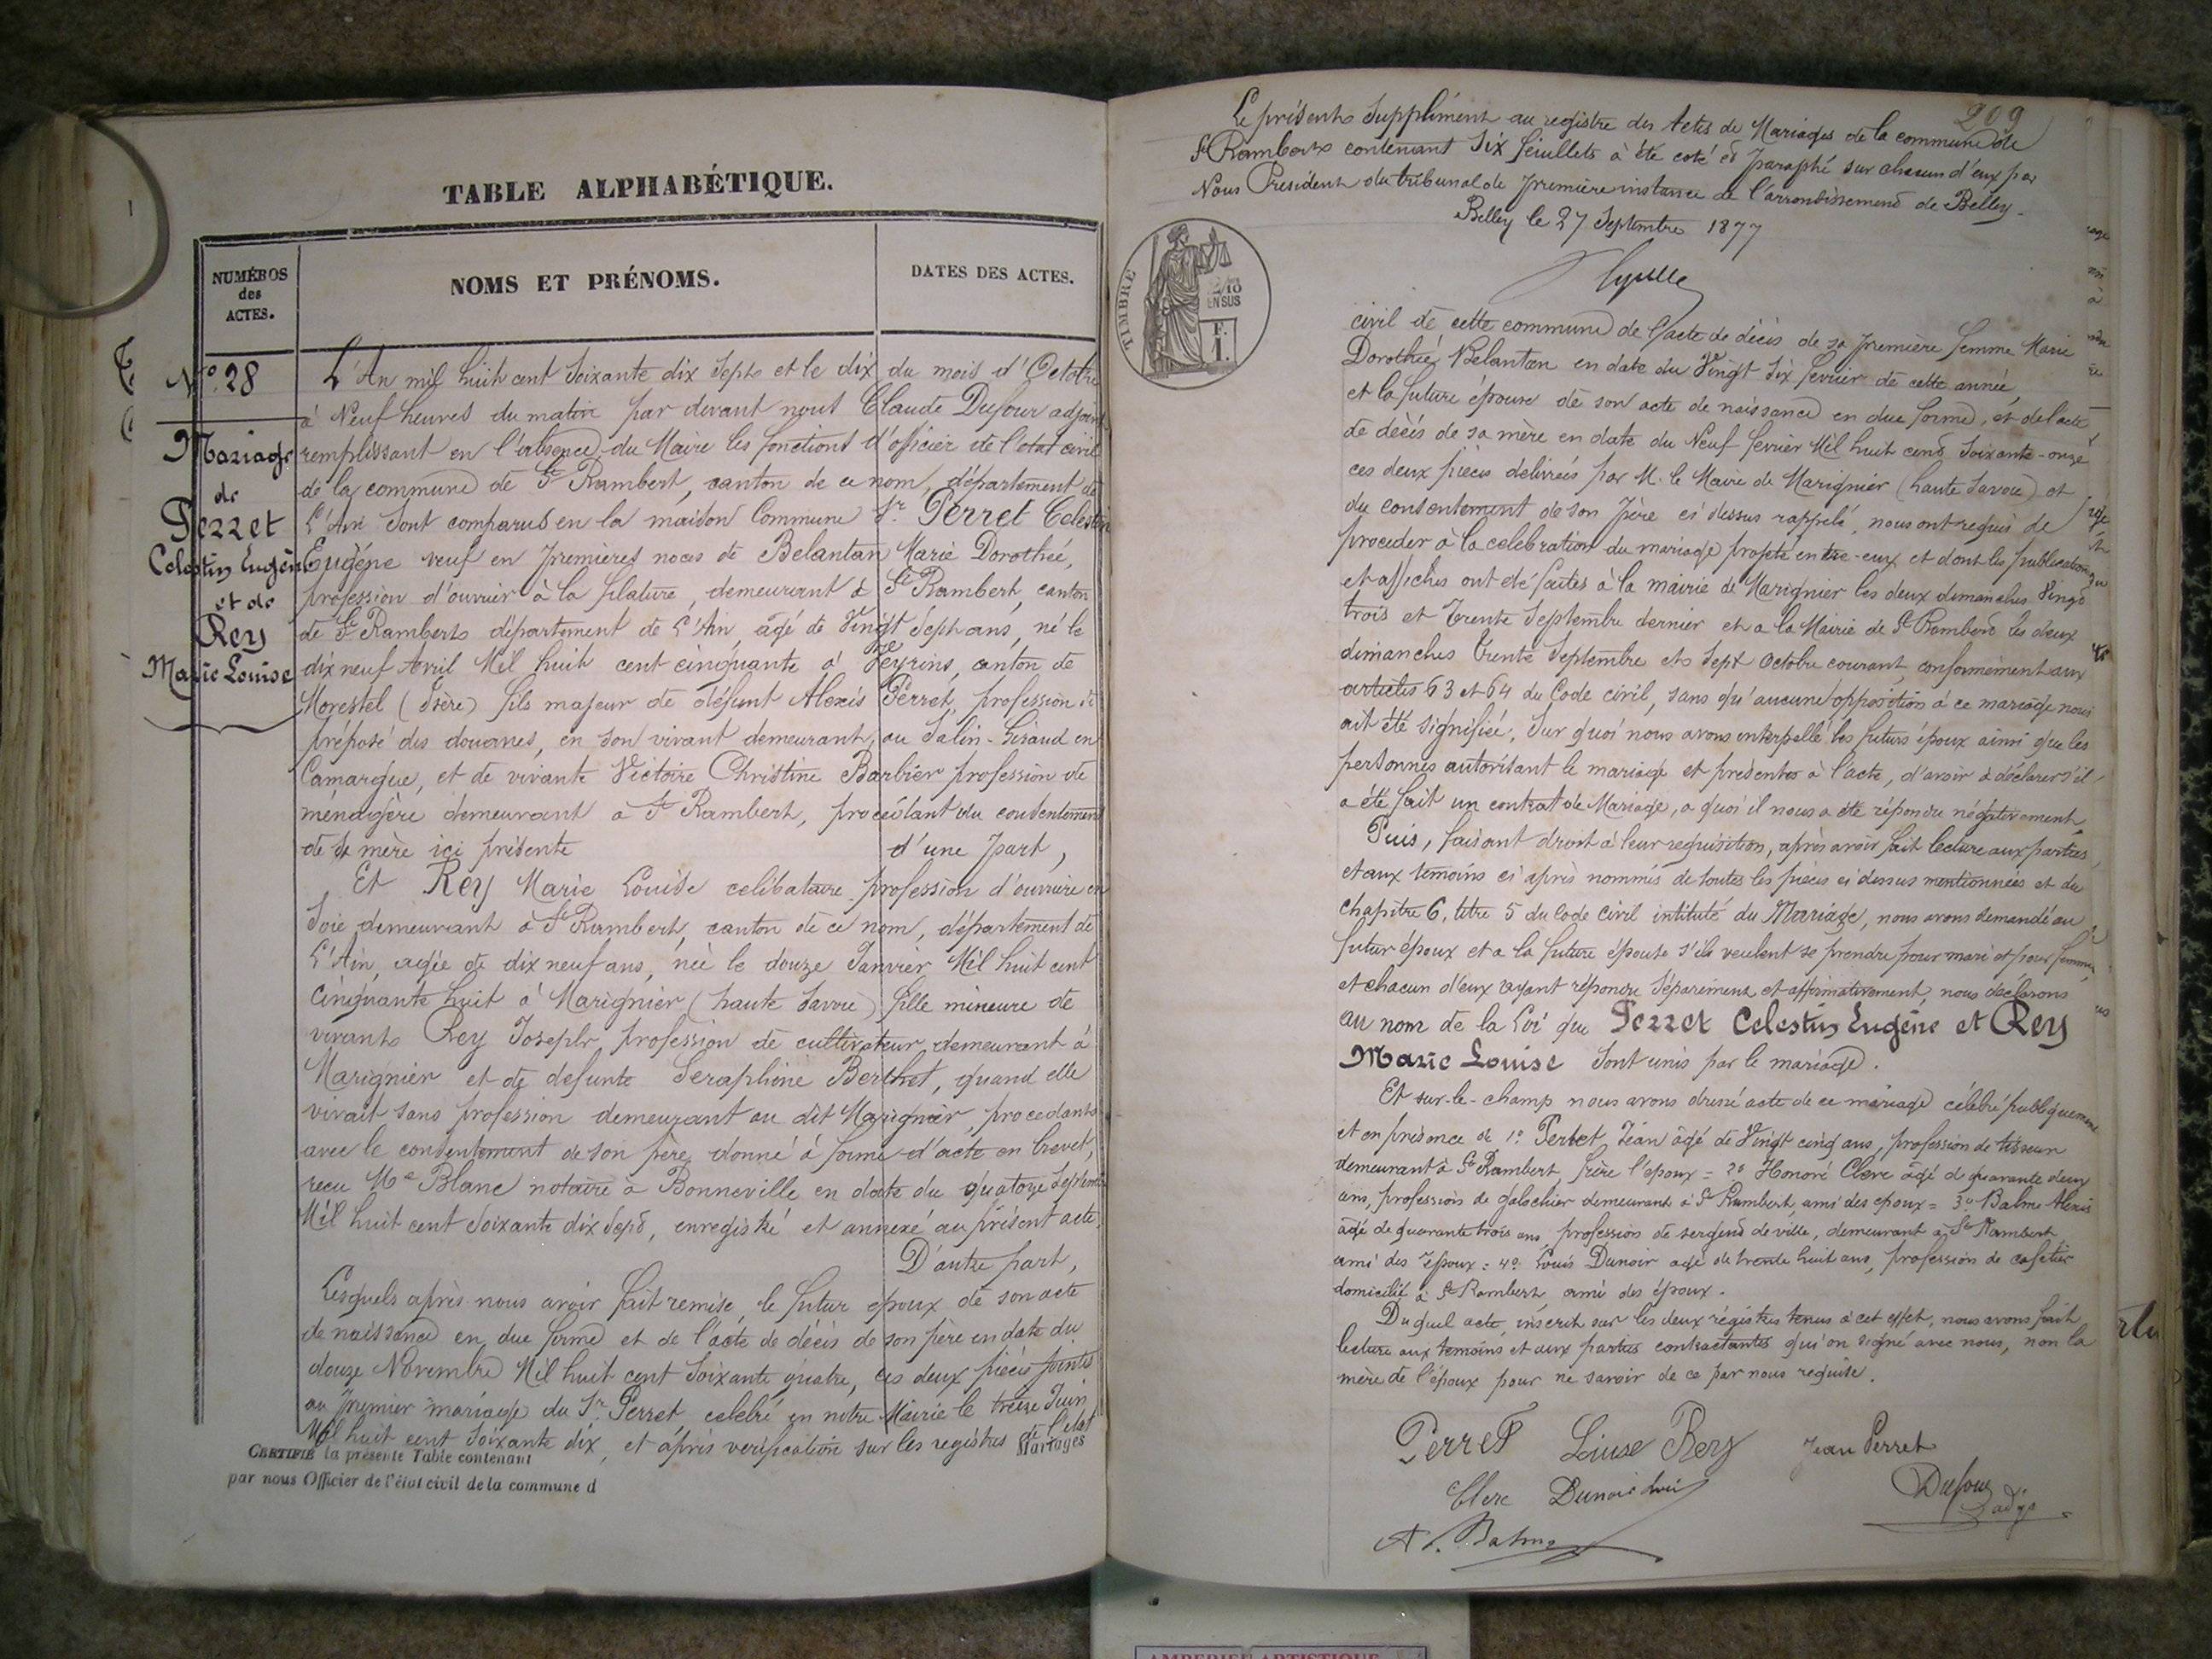 TABLE ALPHABÉTIQUE.
NUMÉROS
des
ACTES.
NOMS ET PRÉNOMS.
DATES DES ACTES.
No. 28
Mariage
de
Perret
Celestin Eugène
et de
Rey
Marie Louise
L'An mil huit cent soixante dix sept et le dix du mois d'Octobre
à Neuf heures du matin par devant nous Claude Dufour adjoint
remplissant en l'absence du Maire les fonctions d'officier de l'état civil
de la commune de St Rambert, canton de ce nom, département de
L'Ain sont comparus en la maison Commune Sr. Perret Celestin
Eugène veuf en premières noces de Belantan Marie Dorothée,
profession d'ouvrier à la filature, demeurant à St Rambert, canton
de St Rambert département de L'Ain, âgé de Vingt sept ans, né le
dix neuf Avril Mil huit cent cinquante à Veyrins, canton de
Morestel (Isère) fils majeur de défunt Alexis Perret, profession de
préposé des douanes, en son vivant demeurant, au Salin-Giraud en
Camargue, et de vivante Victoire Christine Barbier profession de
ménagère demeurant à St Rambert, procédant du consentement
de sa mère ici présente d'une part,
Et Rey Marie Louise celibataire profession d'ouvrière en
Soie demeurant à St Rambert, canton de ce nom, département de
L'Ain, agée de dix neuf ans, née le douze Janvier Mil huit cent
Cinquante huit à Marignier (haute Savoie) fille mineure de
vivants Rey Joseph profession de cultivateur demeurant à
Marignier et de defunte Seraphine Berthet, quand elle
vivait sans profession demeurant au dit Marignier, procedants
avec le consentement de son père donné à forme d'acte en brevet,
reçu Me Blanc notaire à Bonneville en date du quatorze Septembre
Mil huit cent Soixante dix Sept, enregistré et annexé au présent acte,
D'autre part,
Lesquels après nous avoir fait remise, le futur époux de son acte
de naissance en due forme et de l'acte de décès de son père en date du
douze Novembre Mil huit cent soixante quatre, ces deux pièces jointes
au premier mariage du Sr. Perret celebré en notre Mairie le treize Juin
Mil huit cent soixante dix, et après verification sur les registres de l'etat
Mariages
CERTIFIÉ la présente Table contenant
par nous Officier de l'état civil de la commune d
209
Le présent Supplément au registre des Actes de Mariages de la commune de
St Rambert contenant Six feuillets à été coté et paraphé sur chacun d'eux par
Nous Président du tribunal de première instance de l'arrondissement de Belley.
Belley le 27 Septembre 1877
TIMBRE
2/10
EN SUS
F.
1.
civil de cette commune de l'acte de décès de sa première femme Marie
Dorothée Belantan en date du Vingt Six fevrier de cette année,
et la future épouse de son acte de naissance en due forme, et de l'acte
de décès de sa mère en date du Neuf fevrier Mil huit cent Soixante-onze
ces deux pièces delivrées par M. le Maire de Marignier (haute Savoie) et
du consentement de son père ci dessus rappelé, nous ont requis de
proceder à la celebration du mariage projeté entre-eux et dont les publications
et affiches ont été faites à la mairie de Marignier les deux dimanches Vingt
trois et Trente Septembre dernier et a la Mairie de St Rambert les deux
dimanches Trente Septembre et Sept Octobre courant, conformément aux
articles 63 et 64 du Code civil, sans qu'aucune opposition à ce mariage nous
ait été signifiée. Sur quoi nous avons interpellé les futurs époux ainsi que les
personnes autorisant le mariage et présentes à l'acte, d'avoir à déclarer s'il
a été fait un contrat de Mariage, a quoi il nous a été répondu négativement.
Puis, faisant droit à leur requisition, après avoir fait lecture aux parties,
et aux temoins ci après nommés de toutes les pièces ci dessus mentionnées et du
chapitre 6, titre 5 du Code civil intitulé du Mariage, nous avons demandé au
futur époux et a la future épouse s'ils veulent se prendre pour mari et pour femme,
et chacun d'eux ayant répondu séparément et affirmativement, nous déclarons
au nom de la Loi que Perret Celestin Eugène et Rey
Marie Louise sont unis par le mariage.
Et sur-le-champ nous avons dressé acte de ce mariage célébré publiquement
et en présence de 1o. Perret Jean âgé de Vingt cinq ans, profession de tisseur
demeurant à St Rambert, frère l'epoux = 2o Honoré Clerc âgé d quarante deux
ans, profession de galochier demeurant à St Rambert, ami des epoux = 3o Balme Alexis
âgé de quarante trois ans, profession de sergent de ville, demeurant à St Rambert
ami des époux = 4o. Louis Dunoir agé de trente huit ans, profession de cafetier
domicilié à St Rambert, ami des époux.
Du quel acte, inscrit sur les deux régistres tenus à cet effet, nous avons fait
lecture aux temoins et aux parties contractantes qui on signé avec nous, non la
mère de l'époux pour ne savoir de ce par nous requise.
Perret Louise Rey Jean Perret
Clerc Dunoir Louis Dufour
adj.
A. Balme
AMBERIEU ARTISTIQUE